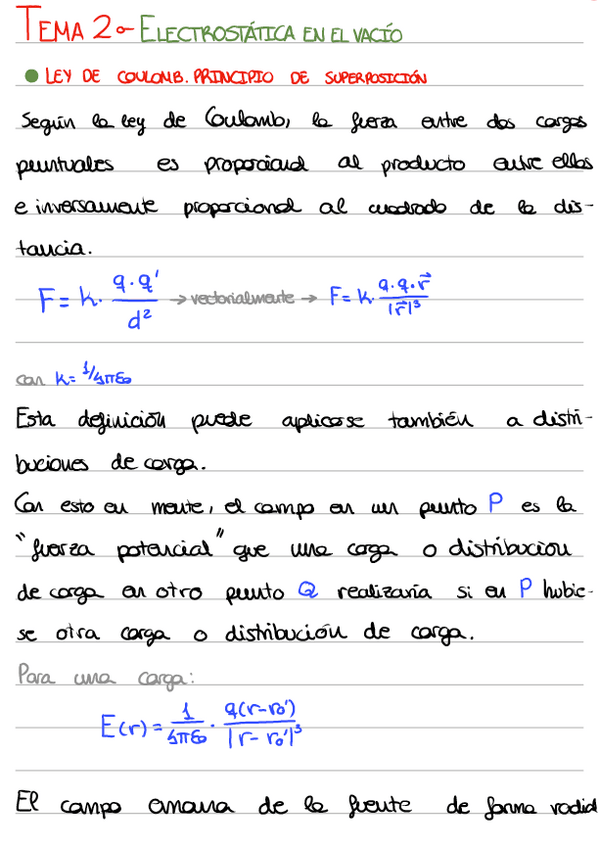 TEMA 2.- ELECTROSTÁTICA EN EL VACÍO
● LEY DE COULOMB. PRINCIPIO DE SUPERPOSICIÓN
Según la ley de Coulomb, la fuerza entre dos cargas
puntuales es proporcional al producto entre ellas
e inversamente proporcional al cuadrado de la dis-
tancia.
F = k · q·q' / d² → vectorialmente → F = k · q·q·r⃗ / |r⃗|³
con k = 1/4πε₀
Esta definición puede aplicarse también a distri-
buciones de carga.
Con esto en mente, el campo en un punto P es la
"fuerza potencial" que una carga o distribución
de carga en otro punto Q realizaría si en P hubie-
se otra carga o distribución de carga.
Para una carga:
E(r) = 1/4πε₀ · q(r-r₀') / |r-r₀'|³
El campo emana de la fuente de forma radial